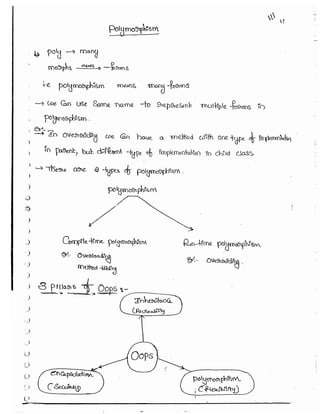 Polymorphism
poly → many
morphs means → forms
i.e polymorphism means many forms
→ we can use same name to represent multiple forms in
polymorphism.
Ex:-
→ In overriding we can have a method with one type of implementation
in parent, but different type of implementation in child class.
→ There are 2 types of polymorphism.
polymorphism
Compile-time polymorphism Run-time polymorphism
Ex:- Overloading
method hiding
Ex:- Overriding.
3 Pillars of Oops :-
Inheritance
(Reusability)
Oops
Encapsulation
(Security)
polymorphism
(Flexibility)